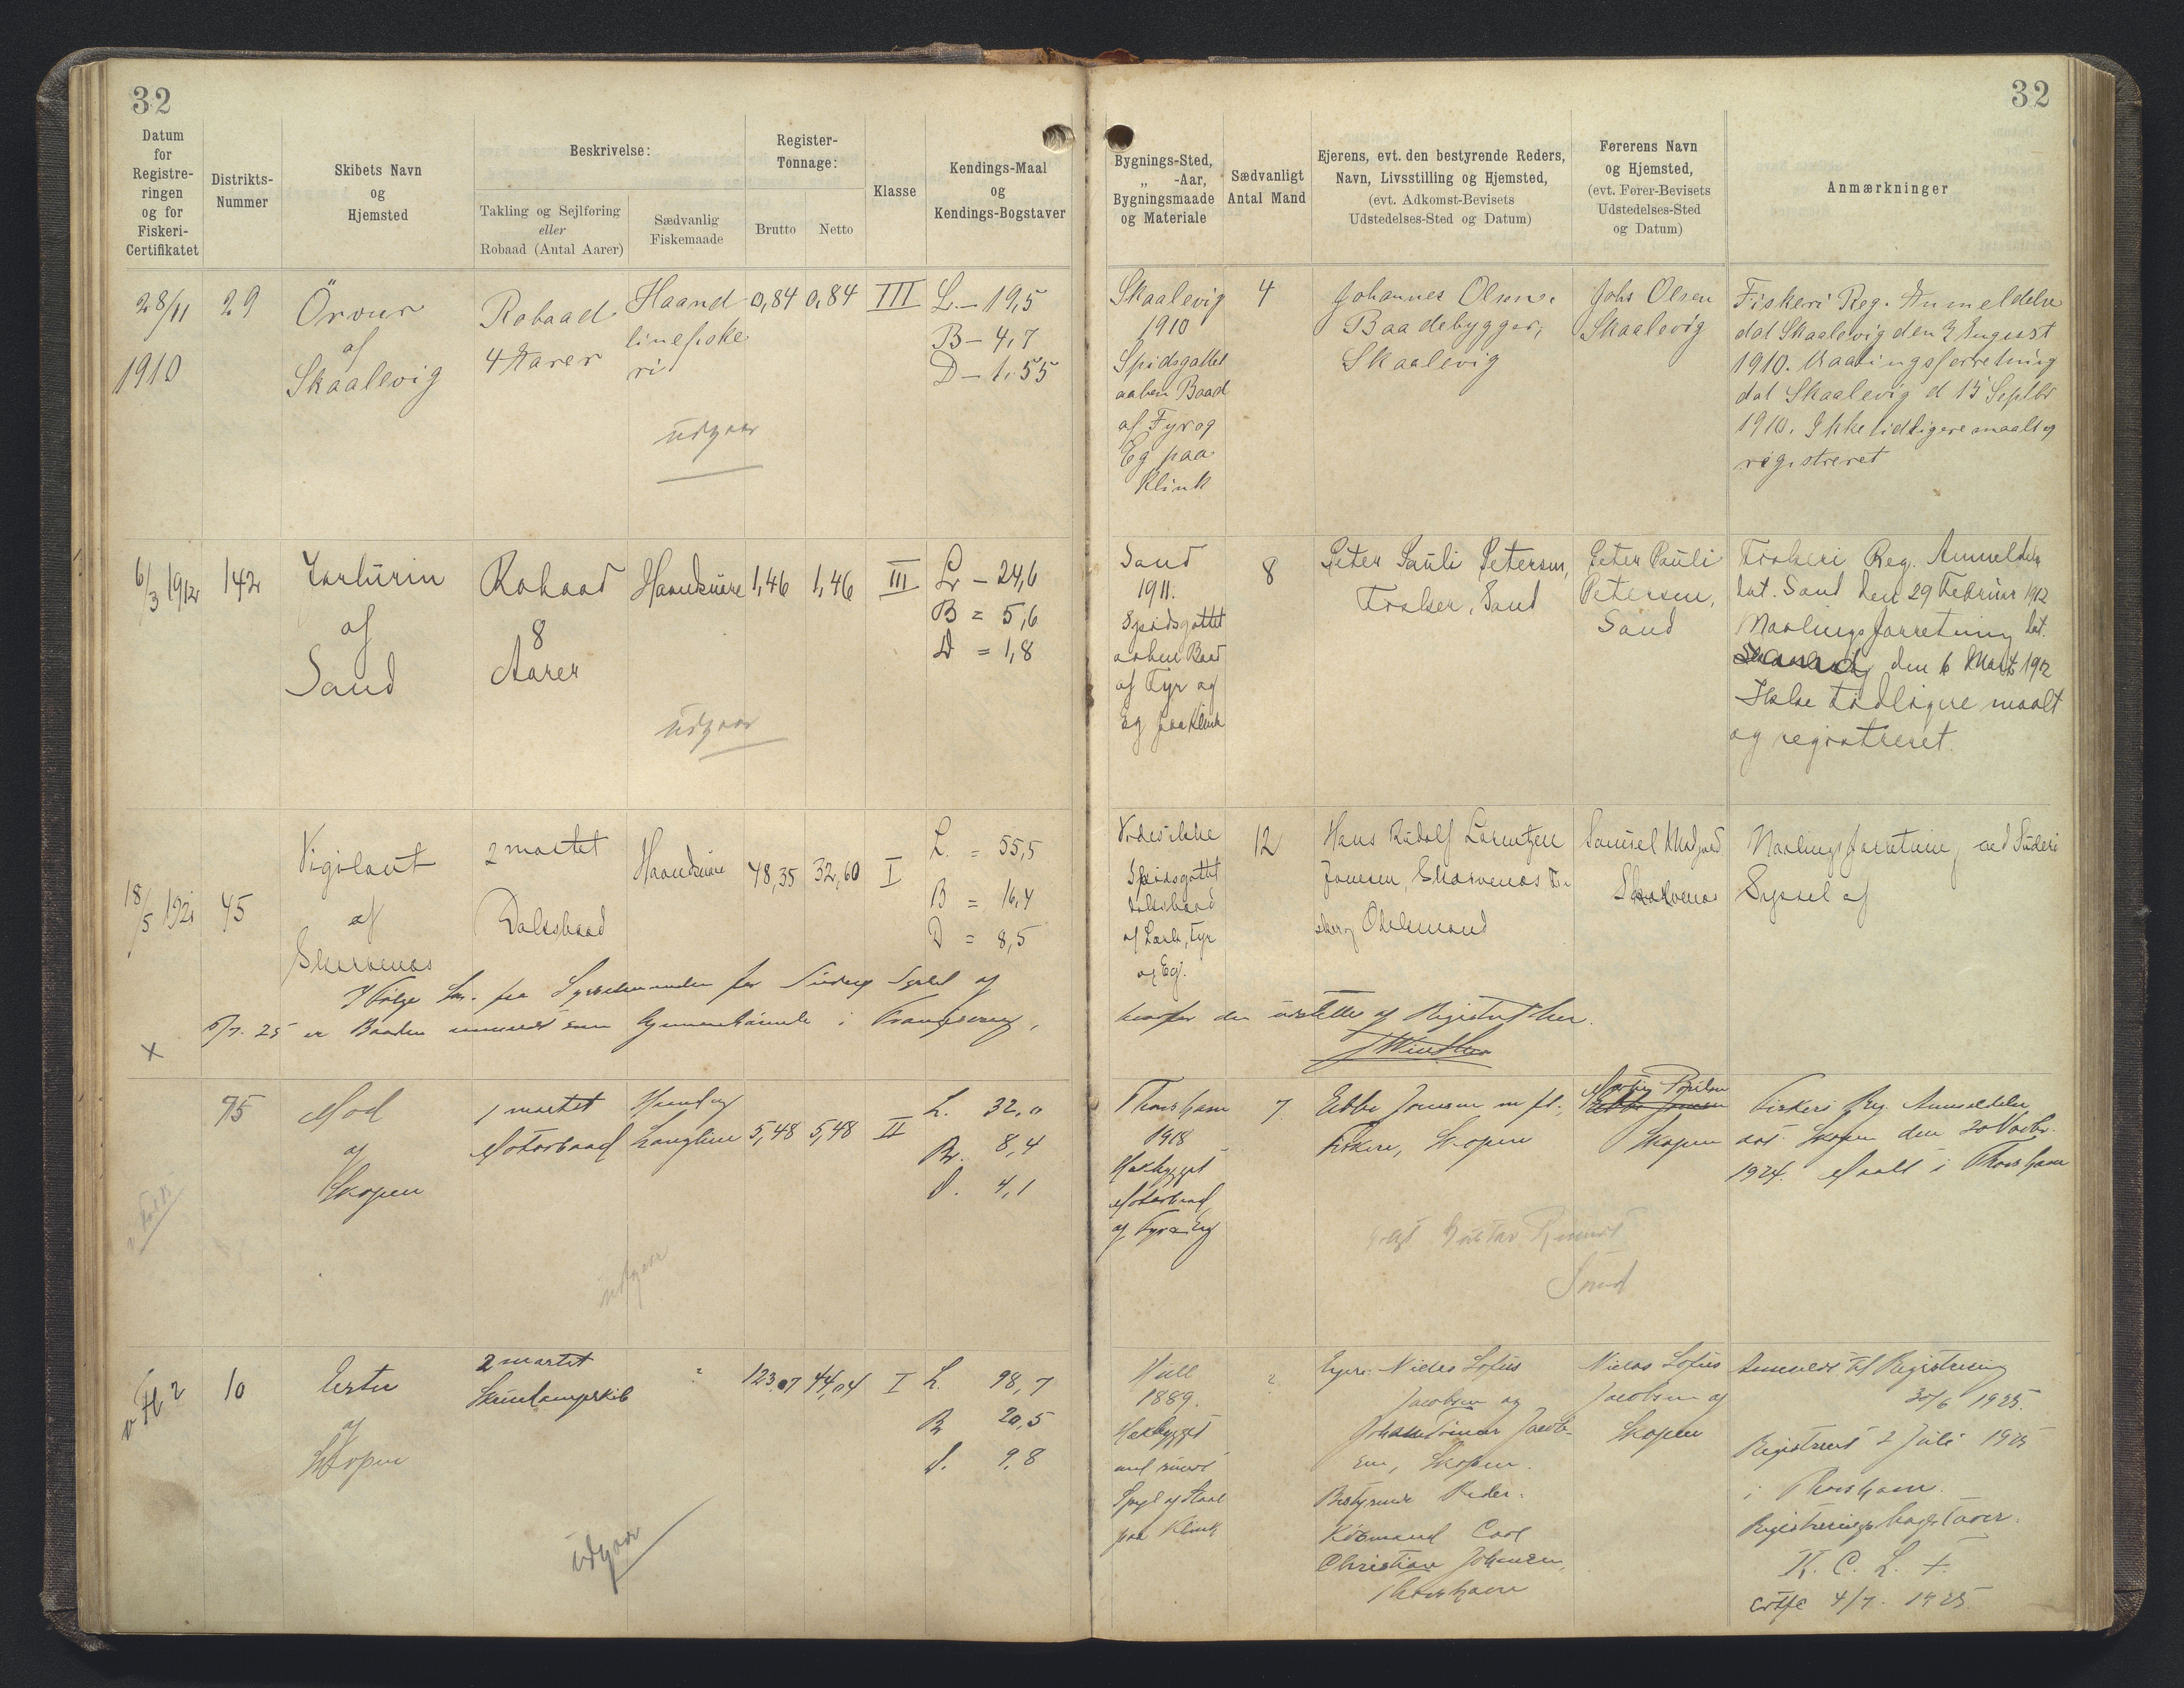 32
32
Datum
for
Registre-
ringen
og for
Fiskeri-
Certifikatet
Distrikts-
Nummer
Skibets Navn
og
Hjemsted
Beskrivelse:
Takling og Sejlføring
eller
Robaad (Antal Aarer)
Sædvanlig
Fiskemaade
Register-
Tonnage:
Brutto Netto
Klasse
Kendings-Maal
og
Kendings-Bogstaver
Bygnings-Sted,
„ -Aar,
Bygningsmaade
og Materiale
Sædvanligt
Antal Mand
Ejerens, evt. den bestyrende Reders,
Navn, Livsstilling og Hjemsted,
(evt. Adkomst-Bevisets
Udstedelses-Sted og Datum)
Førerens Navn
og Hjemsted,
(evt. Fører-Bevisets
Udstedelses-Sted
og Datum)
Anmærkninger
28/11
1910
29
Örvur
af
Skaalevig
Robaad
4 Aarer
Haand
linefiske
ri
0,84 0,84 III
L. – 19,5
B – 4,7
D – 1,55
udgaar
Skaalevig
1910
Spidsgattet
aaben Baad
af Fyr og
Eg paa
Klink
4
Johannes Olsen.
Baadebygger,
Skaalevig
Johs Olsen
Skaalevig
Fiskeri Reg. Anmeldelse
dat Skaalevig den 2 August
1910. Maalingsforretning
dat Skaalevig d 15 Septbr
1910. Ikke tidligere maalt og
registreret
6/3 1912
142
af
Sand
Robaad
8
Aarer
Haandsnøre
1,46 1,46 III
L – 24,6
B = 5,6
D = 1,8
udgaar
Sand
1911.
Spidsgattet
aaben Baad
af Fyr og
Eg paa Klink
8
Peter Pauli Petersen,
Fisker, Sand
Peter Pauli
Petersen,
Sand
Fiskeri Reg. Anmeldelse
dat. Sand den 29 Februar 1912
Maalingsforretning dat.
den 6 Marts 1912
Ikke tidligere maalt
og registreret.
18/5 1921
45
Vigilant
af
Skarvenæs
2 mastet
Dæksbaad
Haandsnøre
48,35 32,60 I
L. = 55,5
B = 16,4
D = 8,5
Vides ikke
Spidsgattet
Dæksbaad
af Lærk, Fyr
og Eg.
12
Hans Rudolf Lorentzen
Joensen, Skarvenæs Fi-
sker og
Samuel
Skarvenæs
Maalingsforretning ved Suderø
Syssel af
I Følge Skr. fra Sysselmanden for Suderø Syssel af
6/7. 25 er Baaden anvendt som i Trangisvaag,
hvorfor den udslettes af Registret her.
x
75
Mod
af
Skopen
1 mastet
Motorbaad
Haand og
Langline
5,48 5,48 II
L. 32,0
Br. 8,4
D. 4,1
udgaar
Thorshavn
1918
Hækbygget
Motorbaad
af Fyr & Eg
7
Ebbe Joensen m fl.,
Fiskere, Skopen
Skopen
Fiskeri Reg. Anmeldelse
dat. Skopen den 20 Novbr.
1924. Maalt i Thorshavn
Solgt Gustav
Sand
10
Ester
af
Skopen
2 mastet
?
123,07 44,04 I
L. 98,7
B 20,5
D. 9,8
udgaar
Hull
1889.
Hækbygget
med rundt
Spejl af Staal
paa Klink
?
Ejere: Niclas Lofus
Jacobsen og
Jacob-
sen, Skopen.
Bestyrende Reder:
Købmand Carl
Christian Johansen,
Thorshavn
Niclas Lofus
Jacobsen af
Skopen
Anmeldt til Registrering
30/6 1925.
Registreret 2 Juli 1925
i Thorshavn.
Registreringsbogstaver:
K. C. L. F.
Certfc 4/7. 1925